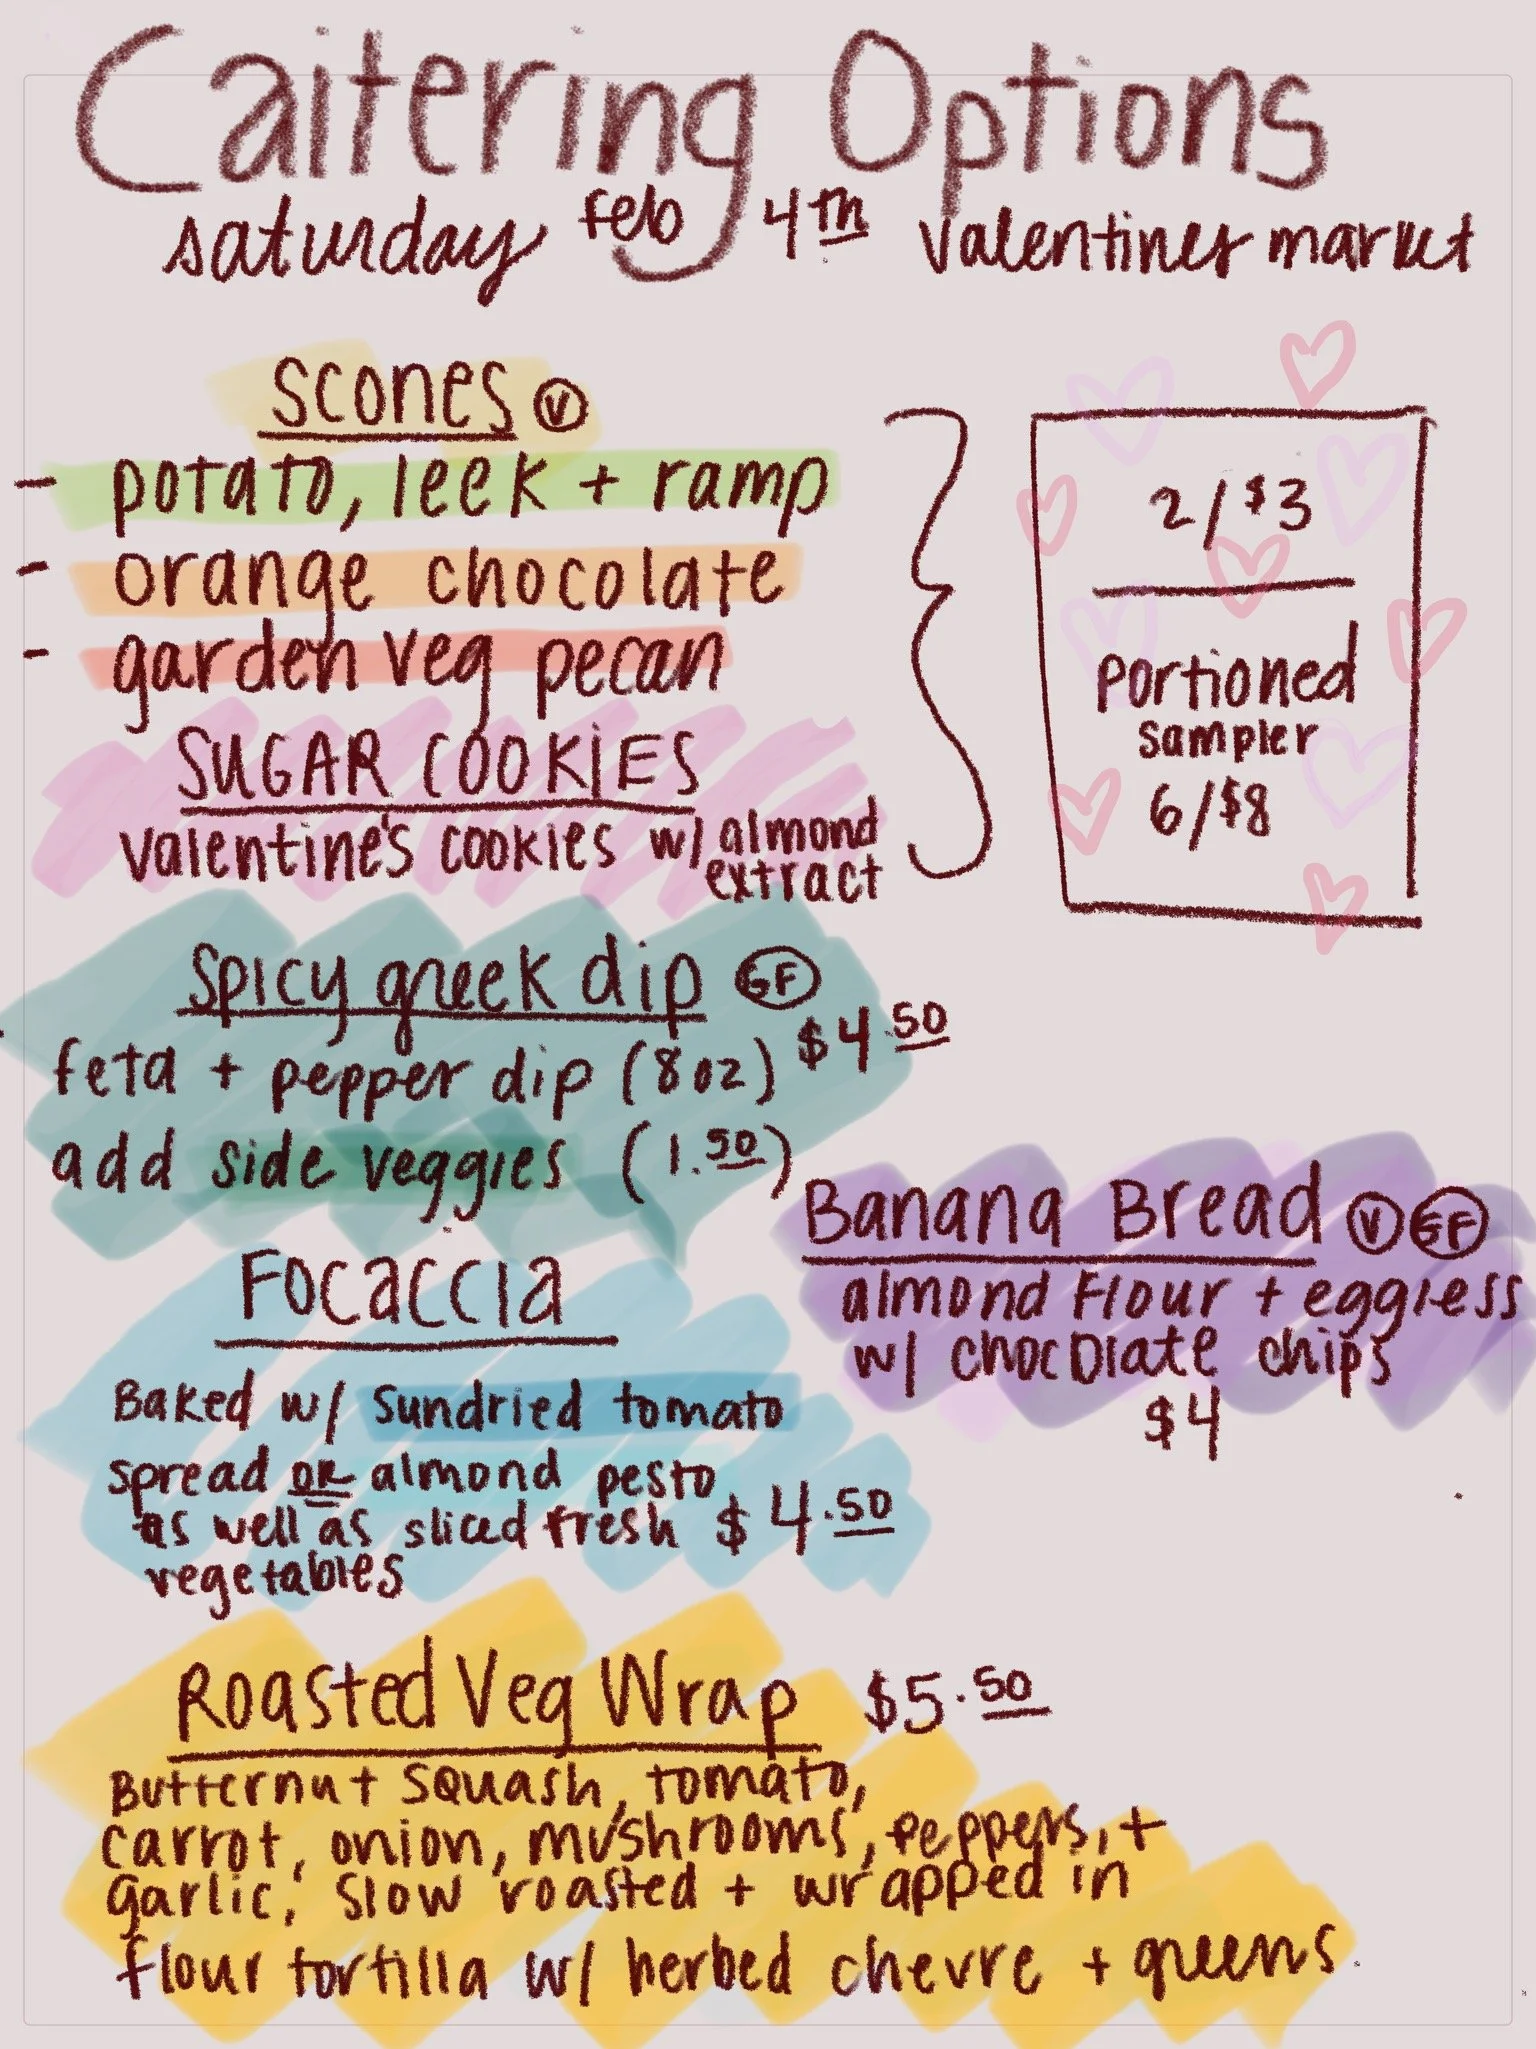 Caitering Options
saturday feb 4th valentines market
SCONES V
- potato, leek + ramp
- orange chocolate
- garden veg pecan
SUGAR COOKIES
valentine's cookies w/ almond
extract
2/$3
portioned
sampler
6/$8
Spicy greek dip GF
feta + pepper dip (8oz) $4.50
add side veggies (1.50)
Banana Bread V GF
almond flour + eggless
w/ chocolate chips
$4
Focaccia
Baked w/ sundried tomato
spread OR almond pesto
as well as sliced fresh $4.50
vegetables
Roasted Veg Wrap $5.50
Butternut squash, tomato,
carrot, onion, mushrooms, peppers, +
garlic, slow roasted + wrapped in
flour tortilla w/ herbed chevre + greens.